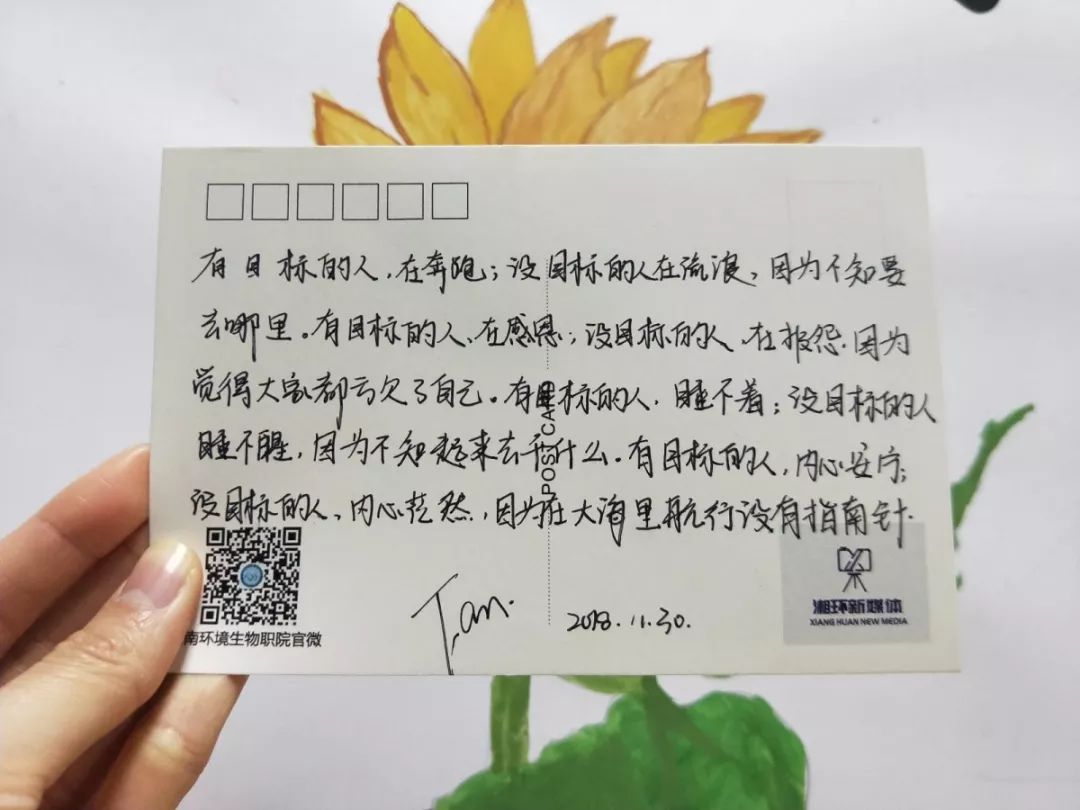 有目标的人,在奔跑;没目标的人在流浪,因为不知要
去哪里。有目标的人、在感恩;没目标的人、在报怨.因为
觉得大家都亏欠了自己。有目标的人,睡不着;没目标的人
睡不醒,因为不知起来去干什么.有目标的人,内心安宁;
没目标的人、内心茫然,因为在大海里航行没有指南针.
POSTCARD
Tan.
2018.11.30.
南环境生物职院官微
湘环新媒体
XIANG HUAN NEW MEDIA